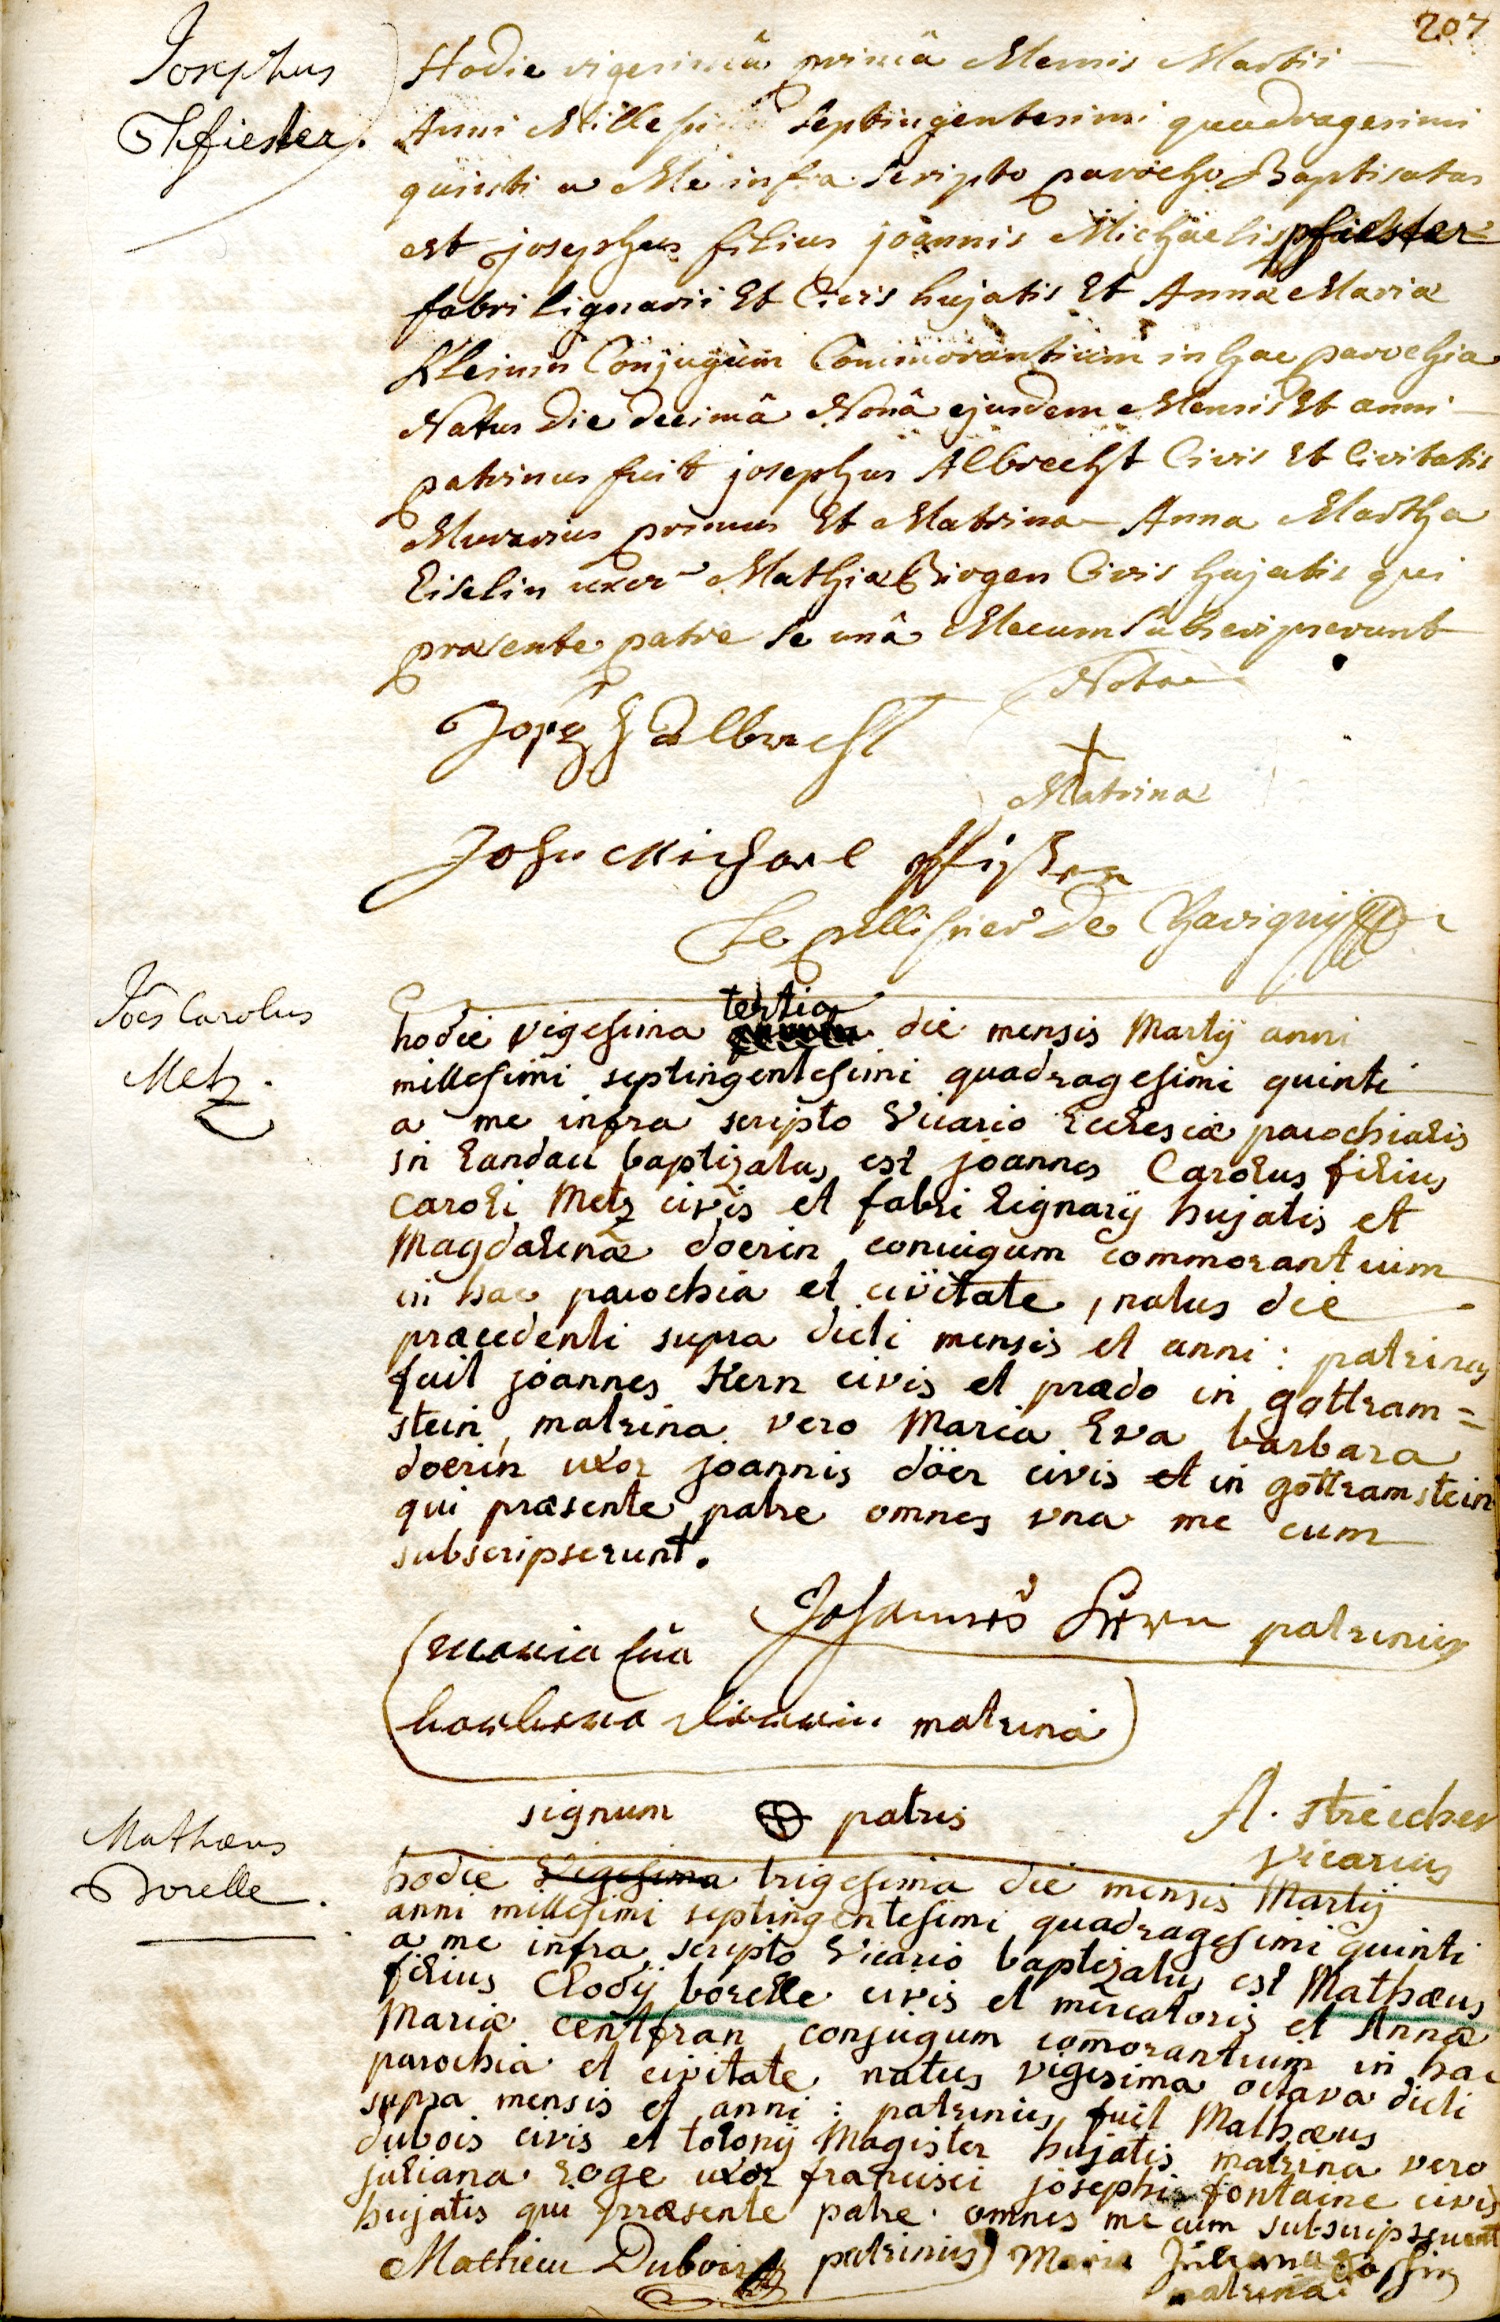 207
Josephus
Pfiester.
Hodie vigesimâ primâ Mensis Martii
Anni Millesimi Septingentesimi quadragesimi
quinti a Me infra scripto parocho Baptisatus
est josephus filius joannis Michaelis pfiester
fabri lignarii Et Civis hujatis Et Anna Maria
Kleinin Conjugum Commorantium in hac parochia
Natus die decimâ Nonâ ejusdem Mensis Et anni
patrinus fuit josephus Albrecht Civis Et Civitatis
Murarius primus Et Matrina Anna Martha
Eiselin uxor Mathiæ Birgen Civis hujatis qui
præsente patre se unâ Mecum Subscripserunt
Nota
Joseph Albrecht
Matrina
Johr Michael pfister
Le pellisier De Chavigny
Joes Carolus
Metz.
hodie vigesima tertia die mensis Martij anni
millesimi septingentesimi quadragesimi quinti
a me infra scripto Vicario Ecclesiæ parochialis
in Landau baptizatus est joannes Carolus filius
Caroli Metz civis et fabri lignarij hujatis et
Magdalenæ doerin coniugum commorantium
in hac parochia et civitate, natus die
præcedenti supra dicti mensis et anni: patrinus
fuit joannes Kern civis et prædo in gottram=
stein, matrina vero Maria Eva barbara
doerin uxor joannis döer civis et in gottramstein
qui præsente patre omnes una me cum
subscripserunt.
Johannes Kern patrinus
maria Eva
barbara dörrin matrina
signum patris
A. streicher
vicarius
Mathæus
Borelle.
hodie vigesima trigesima die mensis Martij
anni millesimi septingentesimi quadragesimi quinti
a me infra scripto Vicario baptizatus est Mathæus
filius Clodij borelle civis et mercatoris et Annæ
Mariæ centfran conjugum comorantium in hac
parochia et civitate natus vigesima octava dicti
supra mensis et anni: patrinus fuit Mathæus
dubois civis et tolonij Magister hujatis matrina vero
juliana roge uxor francisci josephi fontaine civis
hujatis qui præsente patre omnes me cum subscripserunt
Mathieu Dubois patrinus Maria Juliana
matrina